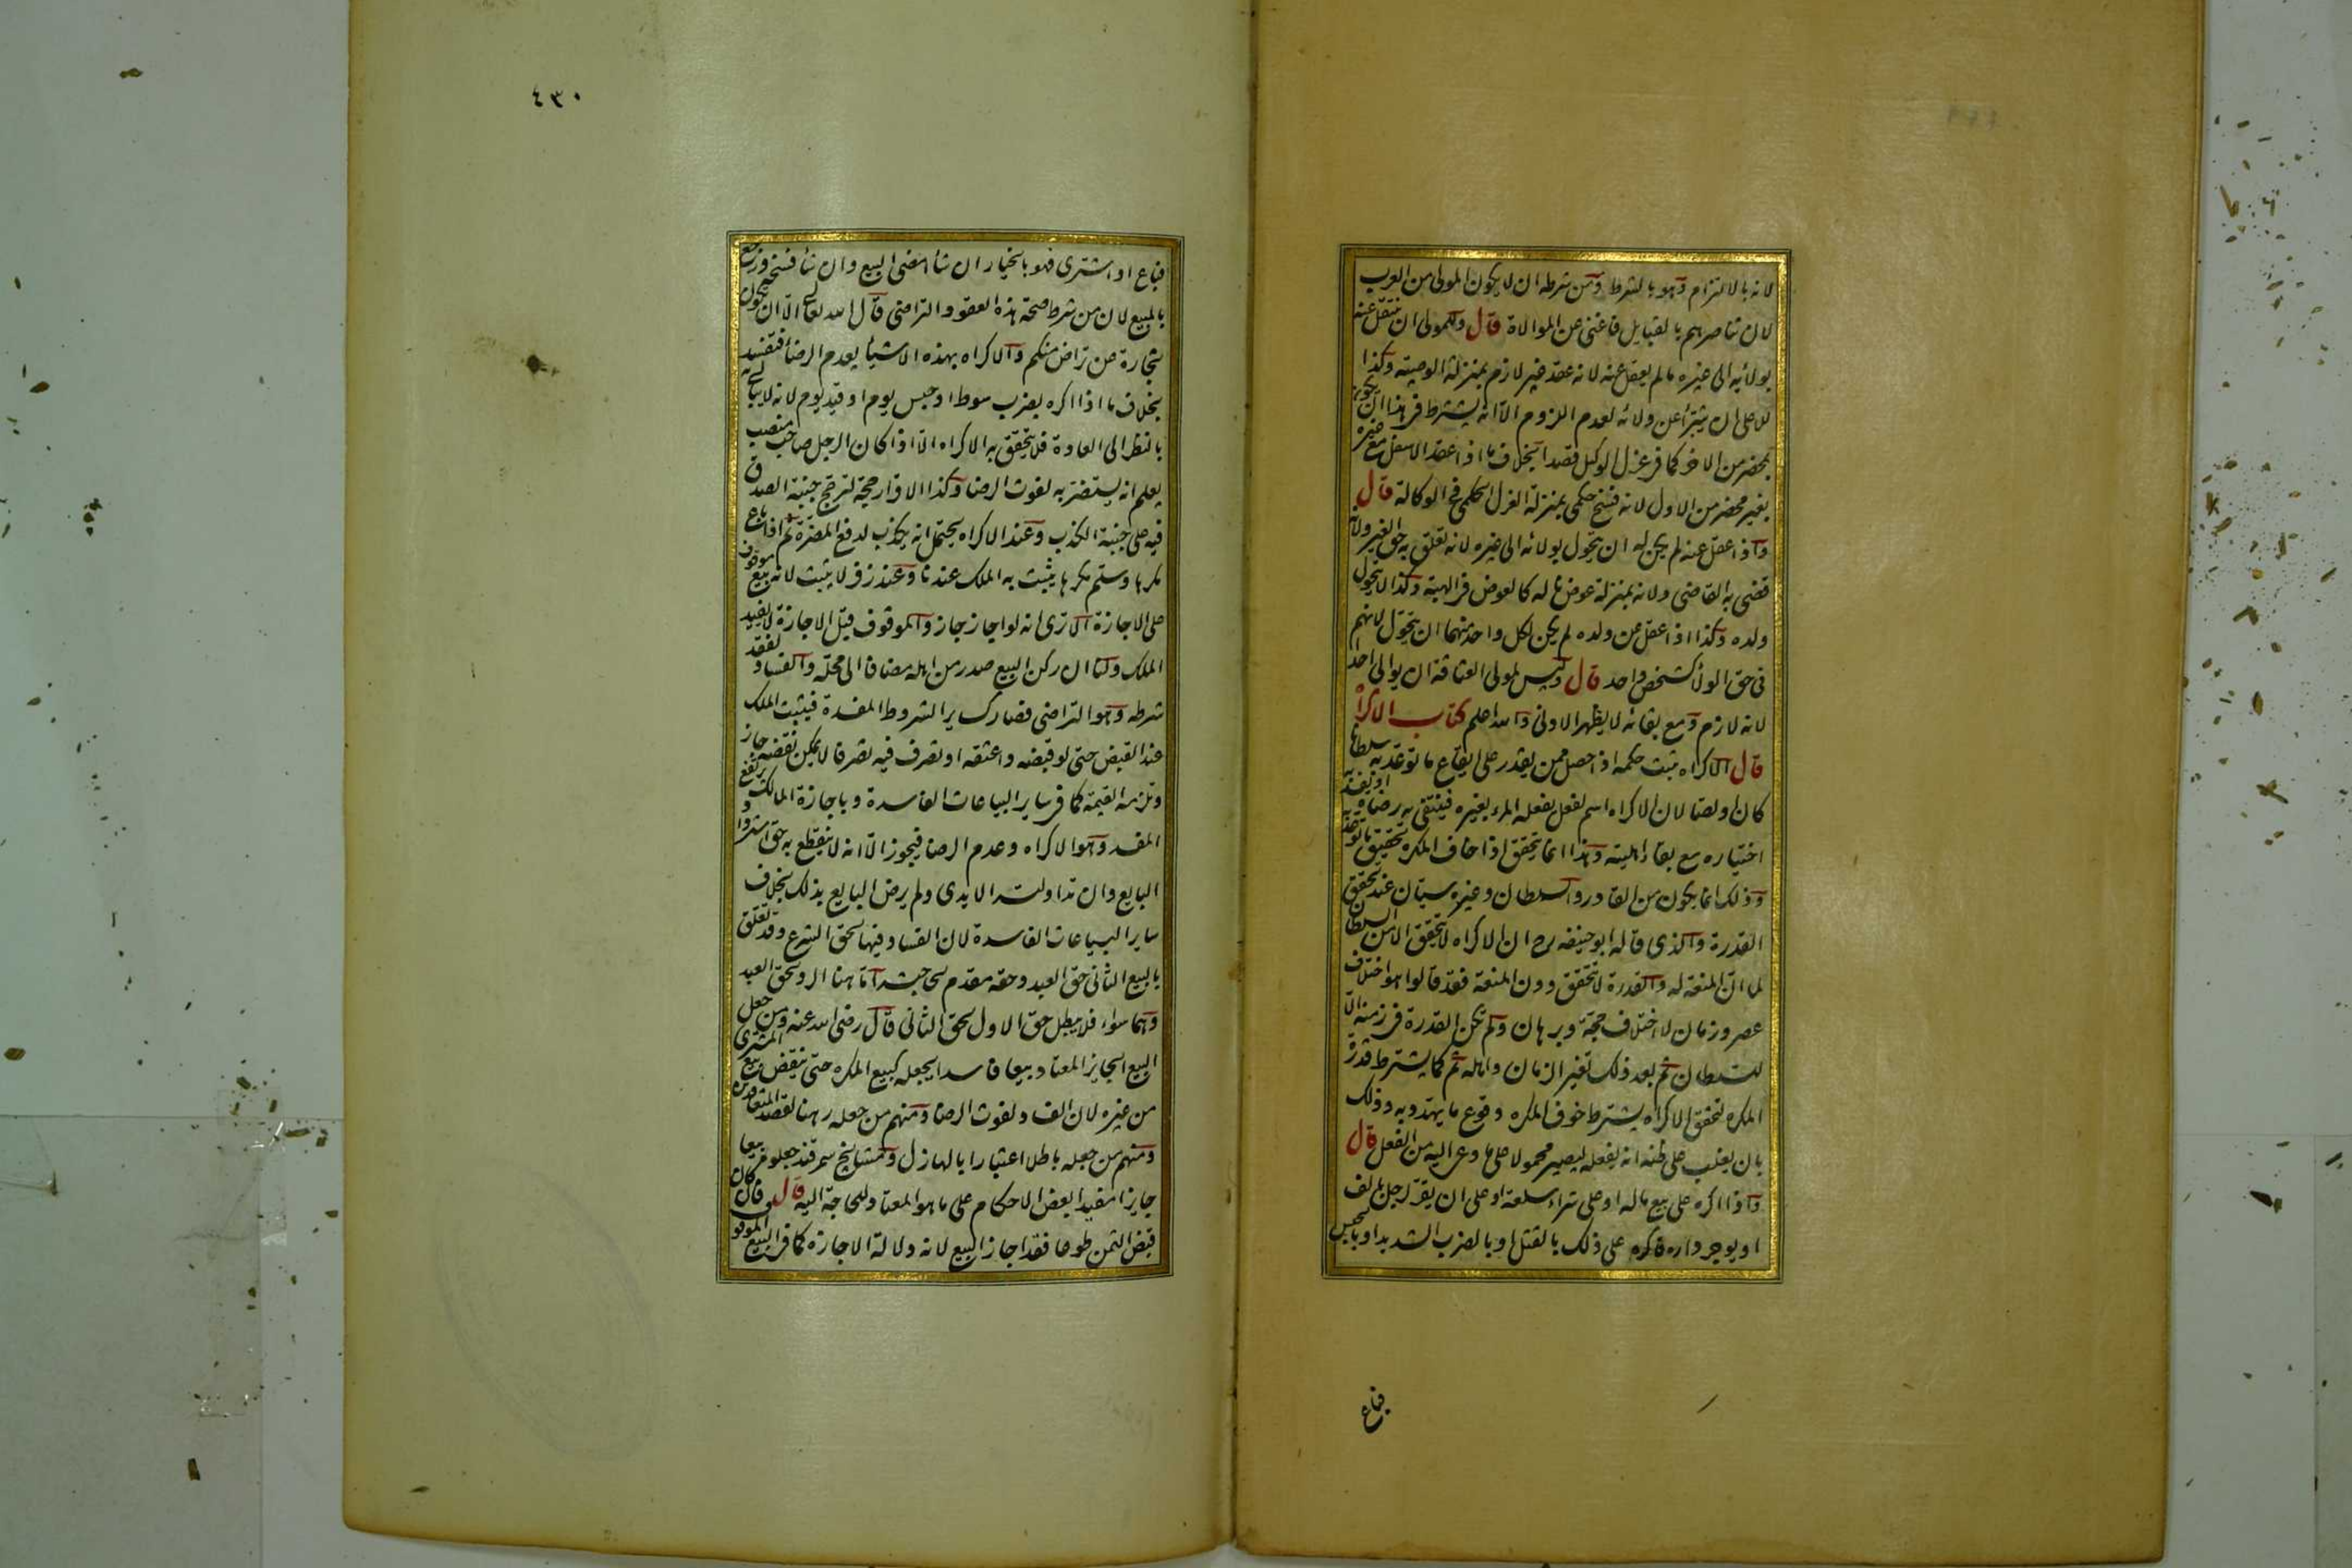 لانه بالالتزام وهو بالشرط ومن شرطه ان لا يكون المولى من العرب
لان تناصرهم بالقبايل فاغنى عن الموالاة قال وللمولى ان ينتقل عنه
بولائه الى غيره ما لم يعقل عنه لانه عقد غير لازم بمنزلة الوصية وكذا
للاعلى ان يتبرأ عن ولائه لعدم اللزوم الا انه يشترط فى هذا ان يكون
بمحضر من الاخر كما فى عزل الوكيل قصدا بخلاف ما اذا عقد الاسفل مع غيره
بغير محضر من الاول لانه فسخ حكمى بمنزلة العزل الحكمى فى الوكالة قال
واذا عقل عنه لم يكن له ان يتحول بولائه الى غيره لانه تعلق به حق الغير ولانه
قضى به القاضى ولانه بمنزلة عوض ناله كالعوض فى الهبة وكذا لا يتحول
ولده وكذا اذا عقل عن ولده لم يكن لكل واحد منهما ان يتحول لانهم
فى حق الولأ كشخص واحد قال وليس لمولى العتاقة ان يوالى احدا
لانه لازم ومع بقائه لا يظهر الادنى والله اعلم كتاب الاكراه
قال الاكراه يثبت حكمه اذا حصل ممن يقدر على ايقاع ما توعد به سلطانا
كان او لصا لان الاكراه اسم لفعل يفعله المرء بغيره فينتفى به رضاه او يفسد به
اختياره مع بقاء اهليته وهذا انما يتحقق اذا خاف المكره تحقيق ما توعد به
وذلك انما يكون من القادر والسلطان وغيره سيان عند تحقق
القدرة والذى قاله ابو حنيفه رح ان الاكراه لا يتحقق الا من السلطان
لما ان المنعة له والقدرة لا تتحقق دون المنعة فقد قالوا هو اختلاف
عصر وزمان لا اختلاف حجة وبرهان ولم تكن القدرة فى زمنه الا
للسلطان ثم بعد ذلك تغير الزمان واهله ثم كما يشترط قدرة
المكره لتحقق الاكراه يشترط خوف المكره وقوع ما يهدد به وذلك
بان يغلب على ظنه انه يفعله ليصير محمولا على ما دعى اليه من الفعل قال
واذا اكره على بيع ماله او على شراء سلعة او على ان يقر لرجل بالف
او يوجر داره فاكره على ذلك بالقتل او بالضرب الشديد او بالحبس
فباع
٤٣٠
فباع او اشترى فهو بالخيار ان شأ امضى البيع وان شأ فسخه ورجع
بالمبيع لان من شرط صحة هذه العقود التراضى قال الله تعالى الا ان تكون
تجارة عن تراض منكم والاكراه بهذه الاشيأ يعدم الرضأ فتفسد
بخلاف ما اذا اكره بضرب سوط او حبس يوم او قيد يوم لانه لا يبالى به
بالنظر الى العادة فلا يتحقق به الاكراه الا اذا كان الرجل صاحب منصب
يعلم انه يستضر به لفوت الرضا وكذا الاقرار حجة لترجح جنبة الصدق
فيه على جنبة الكذب وعند الاكراه يحتمل انه يكذب لدفع المضرة ثم اذا باع
مكرها وسلم مكرها يثبت به الملك عندنا وعند زفر لا يثبت لانه بيع موقوف
على الاجازة الا ترى انه لو اجاز جاز والموقوف قبل الاجازة لا يفيد
الملك ولنا ان ركن البيع صدر من اهله مضافا الى محله والفساد لفقد
شرطه وهو التراضى فصار كساير الشروط المفسدة فيثبت الملك
عند القبض حتى لو قبضه واعتقه او تصرف فيه تصرفا لا يمكن نقضه جاز
وتلزمه القيمة كما فى ساير البياعات الفاسدة وباجازة المالك يرتفع
المفسد وهو الاكراه وعدم الرضا فيجوز الا انه لا ينقطع به حق استرداد
البايع وان تداولته الايدى ولم يرض البايع بذلك بخلاف
ساير البياعات الفاسدة لان الفساد فيها لحق الشرع وقد تعلق
بالبيع الثانى حق العبد وحقه مقدم لحاجته اما هنا الرد لحق العبد
وهما سواء فلا يبطل حق الاول لحق الثانى قال رضى الله عنه ومن جعل
البيع الجايز المعتاد بيعا فاسدا يجعله كبيع المكره حتى ينقض بيع المشترى
من غيره لان الفساد لفوت الرضا ومنهم من جعله رهنا لقصد المتعاقدين
ومنهم من جعله باطلا اعتبارا بالهازل ومشايخ سمرقند جعلوه بيعا
جايزا مفيدا بعض الاحكام على ما هو المعتاد للحاجة اليه قال فان كان
قبض الثمن طوعا فقد اجاز البيع لانه دلالة الاجازة كما فى البيع الموقوف